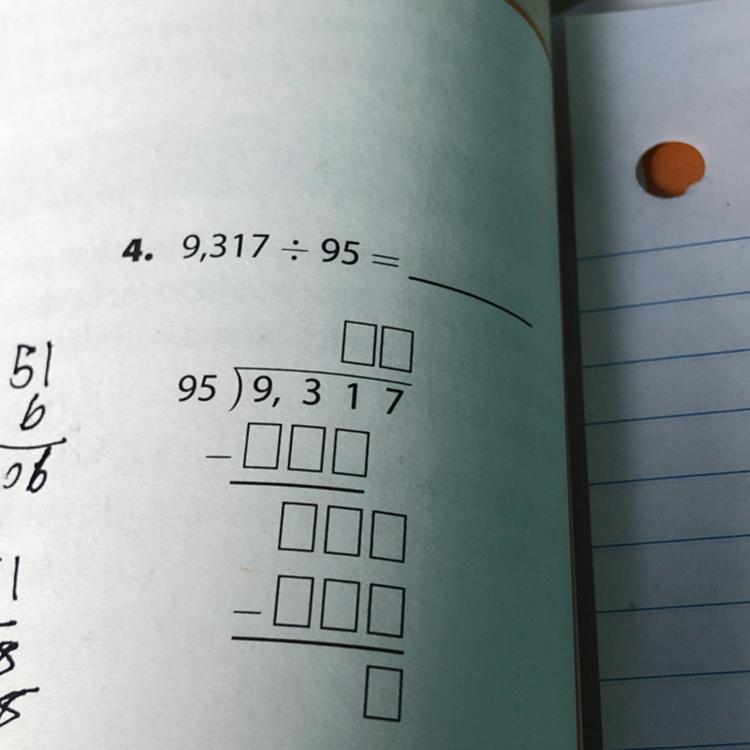 4. 9,317 ÷ 95 =
95 ) 9, 3 1 7
−
−
51
6
1
8